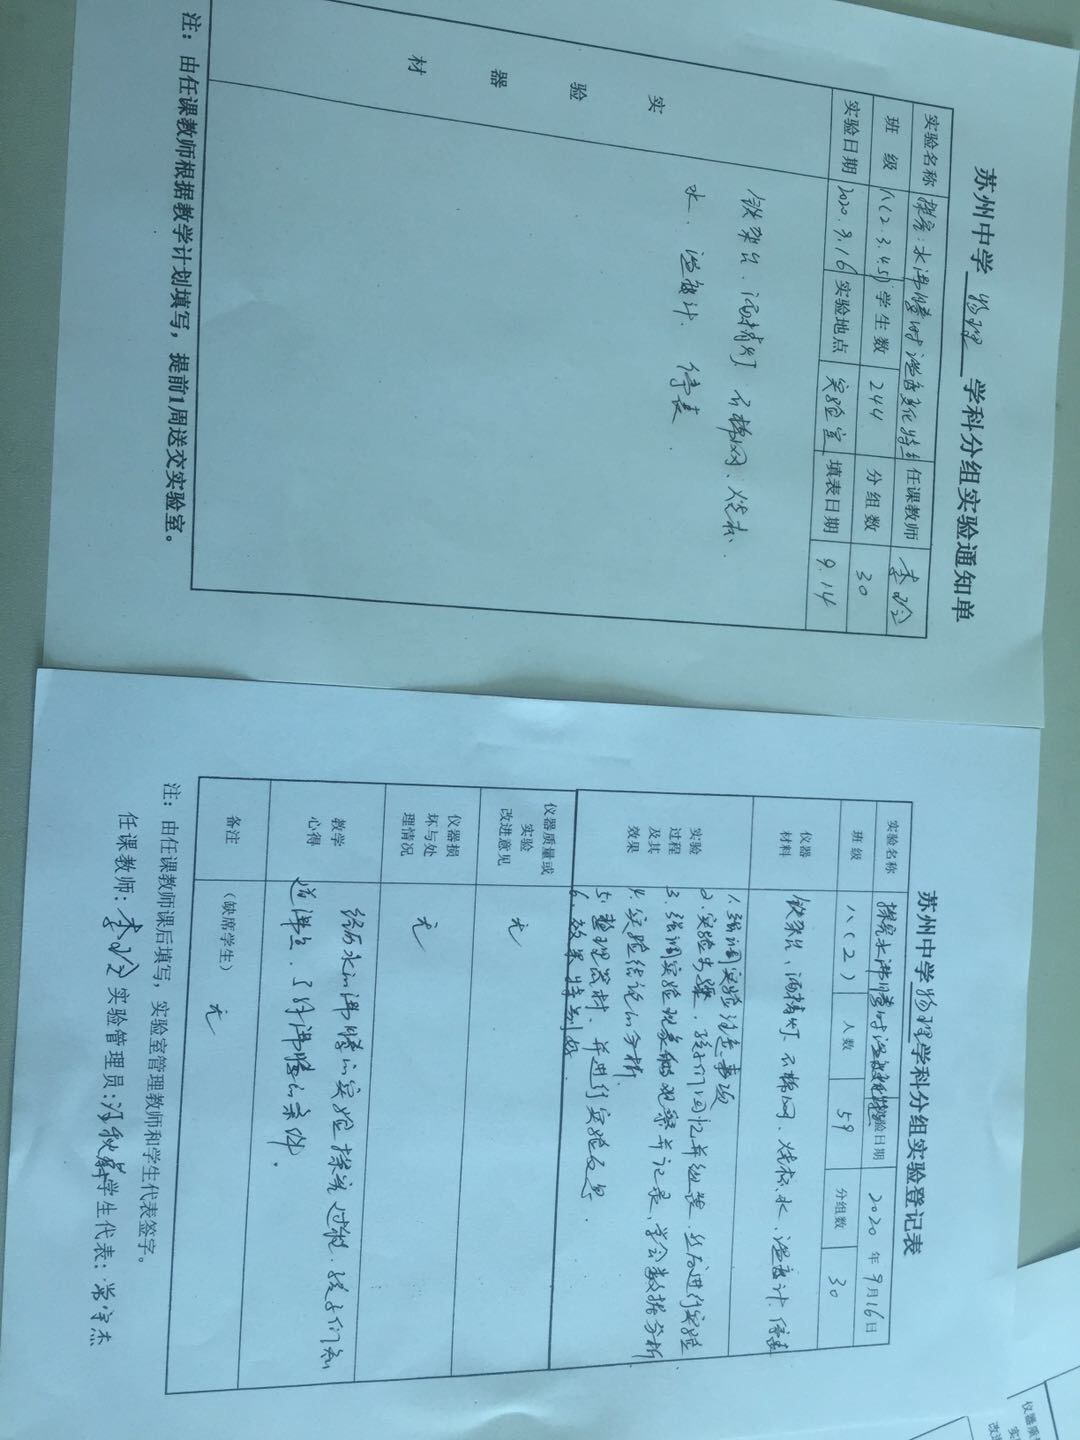 苏州中学 物理 学科分组实验通知单
实验名称 探究:水沸腾时温度变化特点 任课教师
班 级 八(2.3.4.5) 学生数 244 分组数 30
实验日期 2020.9.16 实验地点 实验室 填表日期 9.14
实 验 器 材
铁架台、酒精灯、石棉网、烧杯、
水、温度计、停表
注:由任课教师根据教学计划填写,提前1周送交实验室。
苏州中学物理学科分组实验登记表
实验名称 探究水沸腾时温度变化特点 实验日期 2020年9月16日
班级 八(2) 人数 59 分组数 30
仪器材料 铁架台、酒精灯、石棉网、烧杯、水、温度计、停表
实验过程及其效果
1.强调实验注意事项
2.实验步骤,孩子们回忆并组装,然后进行实验
3.强调实验现象的观察并记录,学会数据分析
4.实验结论的分析
5.整理器材,并进行实验反思.
6.效果特别好.
仪器质量或实验改进意见 无
仪器损坏与处理情况 无
教学心得 经历水的沸腾的实验探究过程,孩子们知
道沸点,了解沸腾的条件.
备注 (缺席学生) 无
注:由任课教师课后填写,实验室管理教师和学生代表签字。
任课教师: 实验管理员: 学生代表: